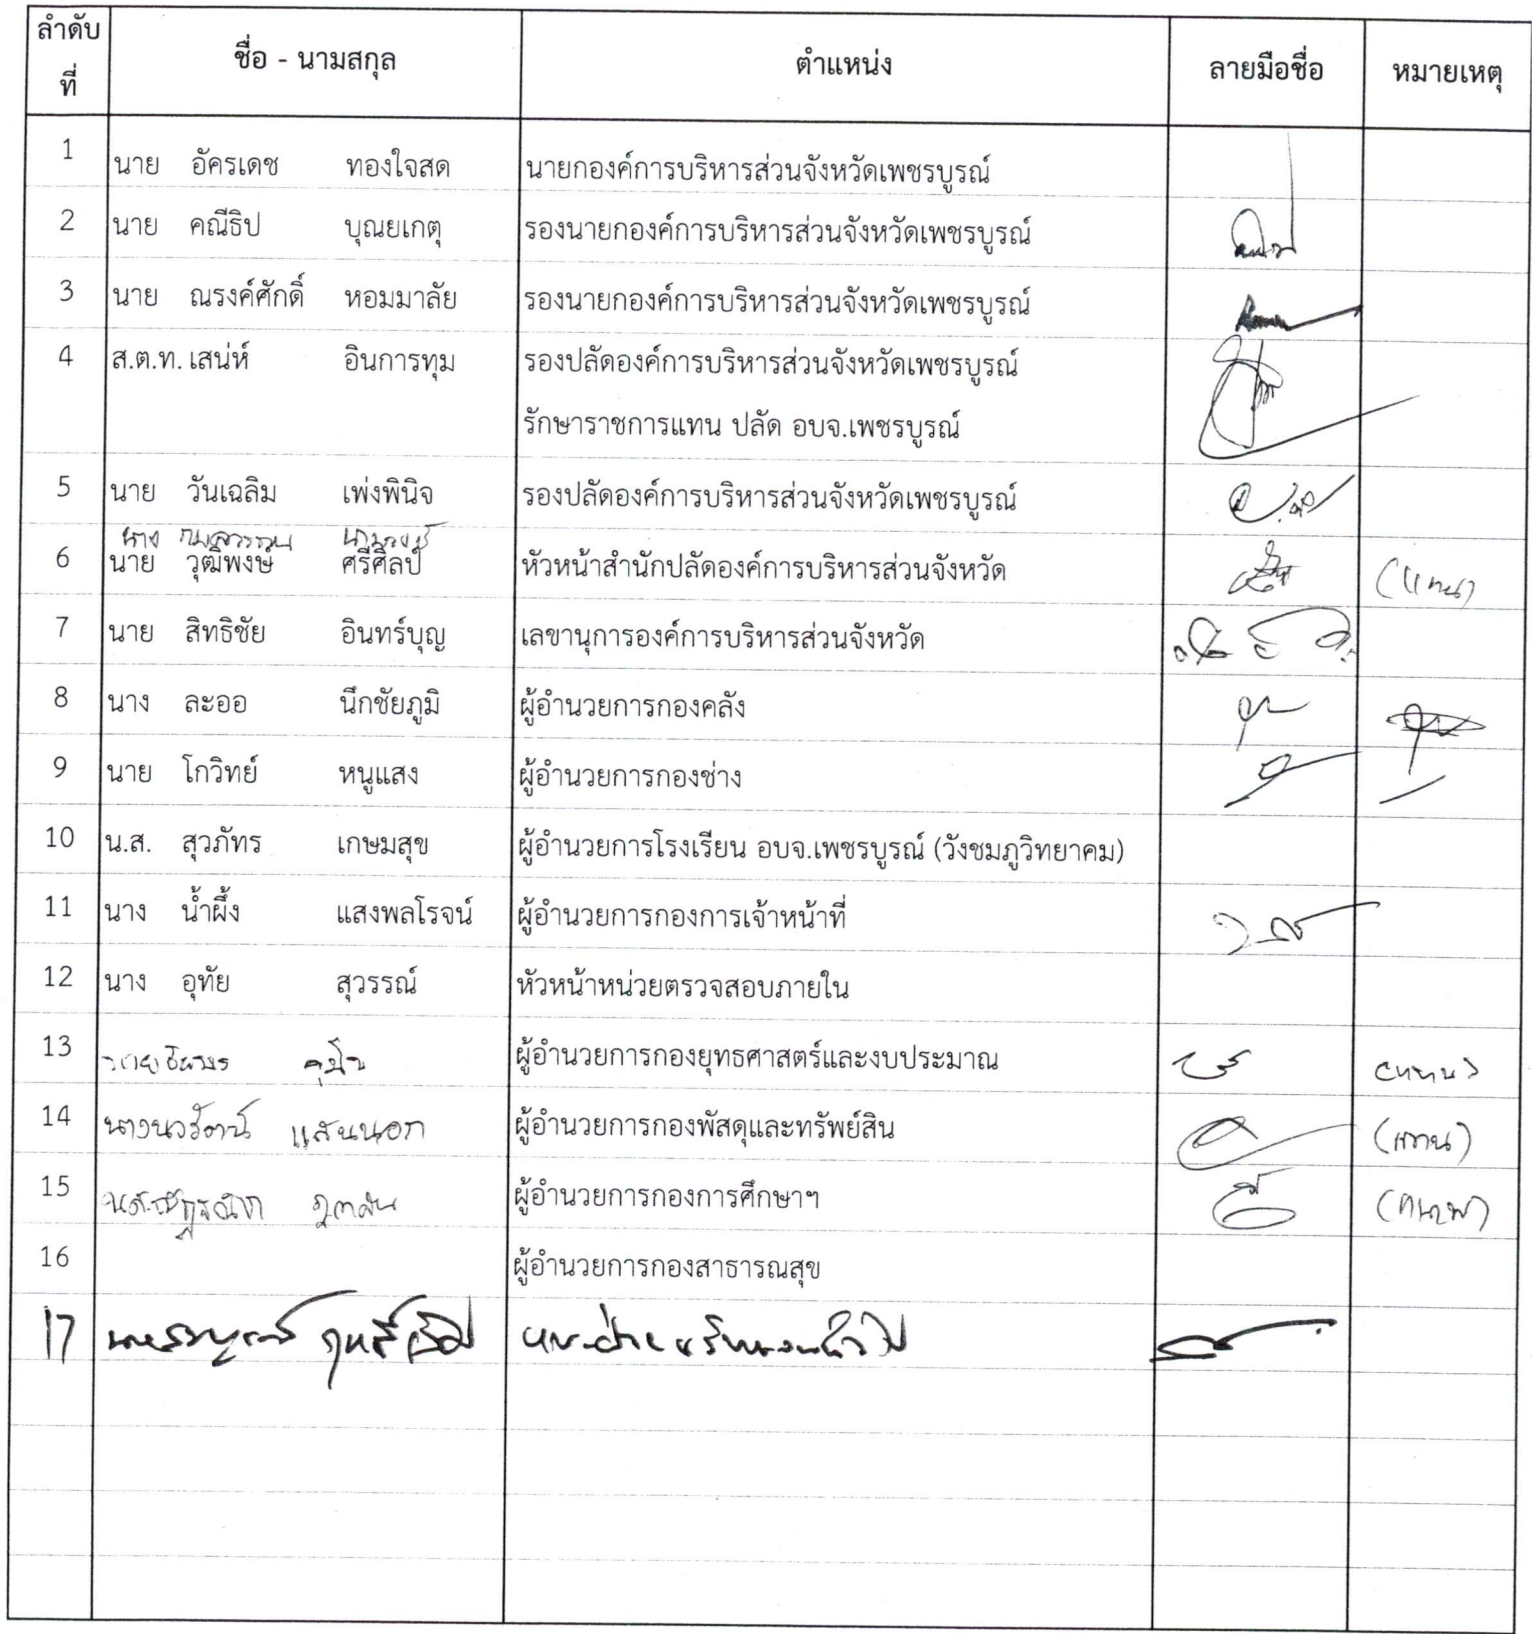 ลำดับที่ ชื่อ - นามสกุล ตำแหน่ง ลายมือชื่อ หมายเหตุ
1 นาย อัครเดช ทองใจสด นายกองค์การบริหารส่วนจังหวัดเพชรบูรณ์
2 นาย คณีธิป บุณยเกตุ รองนายกองค์การบริหารส่วนจังหวัดเพชรบูรณ์
3 นาย ณรงค์ศักดิ์ หอมมาลัย รองนายกองค์การบริหารส่วนจังหวัดเพชรบูรณ์
4 ส.ต.ท. เสน่ห์ อินการทุม รองปลัดองค์การบริหารส่วนจังหวัดเพชรบูรณ์
รักษาราชการแทน ปลัด อบจ.เพชรบูรณ์
5 นาย วันเฉลิม เพ่งพินิจ รองปลัดองค์การบริหารส่วนจังหวัดเพชรบูรณ์
นาง
6 นาย วุฒิพงษ์ ศรีศิลป์ หัวหน้าสำนักปลัดองค์การบริหารส่วนจังหวัด (แทน)
7 นาย สิทธิชัย อินทร์บุญ เลขานุการองค์การบริหารส่วนจังหวัด
8 นาง ละออ นึกชัยภูมิ ผู้อำนวยการกองคลัง
9 นาย โกวิทย์ หนูแสง ผู้อำนวยการกองช่าง
10 น.ส. สุวภัทร เกษมสุข ผู้อำนวยการโรงเรียน อบจ.เพชรบูรณ์ (วังชมภูวิทยาคม)
11 นาง น้ำผึ้ง แสงพลโรจน์ ผู้อำนวยการกองการเจ้าหน้าที่
12 นาง อุทัย สุวรรณ์ หัวหน้าหน่วยตรวจสอบภายใน
13 ผู้อำนวยการกองยุทธศาสตร์และงบประมาณ (แทน)
14 นางนวรัตน์ แสนนอก ผู้อำนวยการกองพัสดุและทรัพย์สิน (แทน)
15 ผู้อำนวยการกองการศึกษาฯ
16 ผู้อำนวยการกองสาธารณสุข
17